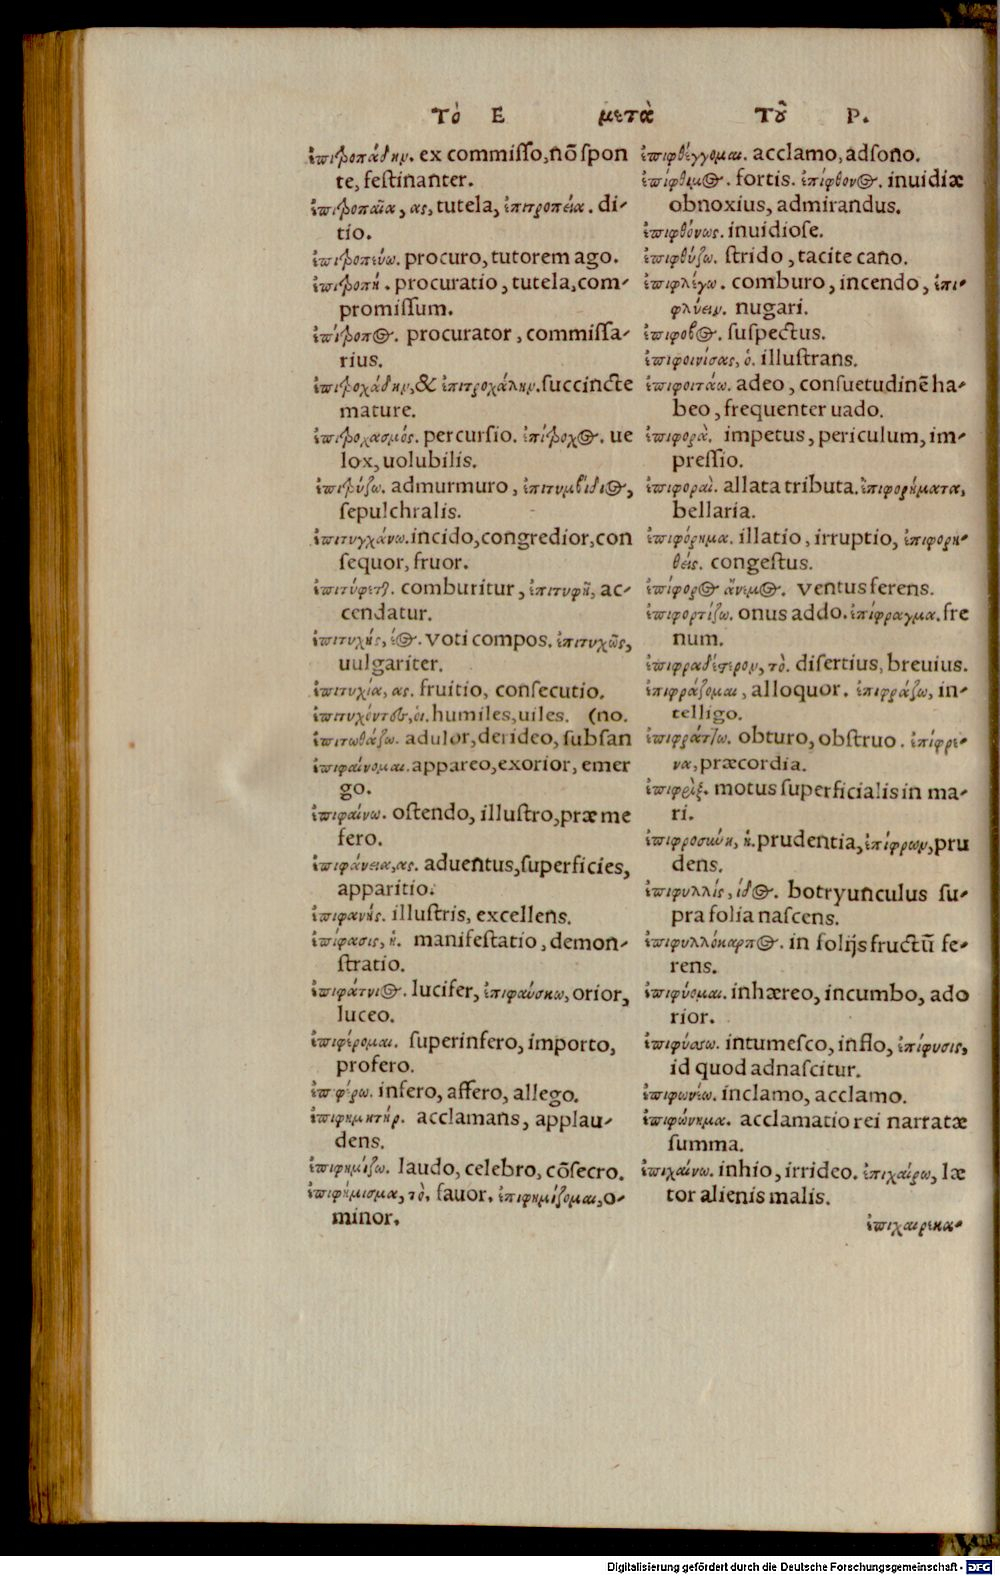 Τὸ Ε μετὰ Τοῦ Ρ.
ἐπιτροπάδην. ex commisso, nō spon
te, festinanter.
ἐπιτροπαία, ας, tutela, ἐπιτροπεία. di-
tio.
ἐπιτροπεύω. procuro, tutorem ago.
ἐπιτροπή. procuratio, tutela, com-
promissum.
ἐπίτροπος. procurator, commissa-
rius.
ἐπιτροχάδην, & ἐπιτροχάλην. succincte
mature.
ἐπιτροχασμός. percursio. ἐπίτροχος. ue
lox, uolubilis.
ἐπιτρύζω. admurmuro, ἐπιτυμβίδιος,
sepulchralis.
ἐπιτυγχάνω. incido, congredior, con
sequor, fruor.
ἐπιτύφεται. comburitur, ἐπιτυφῇ, ac-
cendatur.
ἐπιτυχής, έος. voti compos. ἐπιτυχῶς,
uulgariter.
ἐπιτυχία, ας. fruitio, consecutio.
ἐπιτυχόντες, οἱ. humiles, uiles. (no.
ἐπιτωθάζω. adulor, derideo, subsan
ἐπιφαίνομαι. appareo, exorior, emer
go.
ἐπιφαίνω. ostendo, illustro, præ me
fero.
ἐπιφάνεια, ας. aduentus, superficies,
apparitio.
ἐπιφανής. illustris, excellens.
ἐπίφασις, ἡ. manifestatio, demon-
stratio.
ἐπιφάτνιος. lucifer, ἐπιφαύσκω, orior,
luceo.
ἐπιφέρομαι. superinfero, importo,
profero.
ἐπιφέρω. infero, affero, allego.
ἐπιφημητήρ. acclamans, applau-
dens.
ἐπιφημίζω. laudo, celebro, cōsecro.
ἐπιφήμισμα, τό. fauor. ἐπιφημίζομαι, o-
minor.
ἐπιφθέγγομαι. acclamo, adsono.
ἐπίφθιμος. fortis. ἐπίφθονος. inuidiæ
obnoxius, admirandus.
ἐπιφθόνως. inuidiose.
ἐπιφθύζω. strido, tacite cano.
ἐπιφλέγω. comburo, incendo, ἐπι-
φλύειν. nugari.
ἐπιφοβος. suspectus.
ἐπιφοινίσας, ὁ. illustrans.
ἐπιφοιτάω. adeo, consuetudinē ha-
beo, frequenter uado.
ἐπιφορὰ. impetus, periculum, im-
pressio.
ἐπιφοραὶ. allata tributa. ἐπιφορήματα,
bellaria.
ἐπιφόρημα. illatio, irruptio, ἐπιφορη-
θείς. congestus.
ἐπίφορος ἄνεμος. ventus ferens.
ἐπιφορτίζω. onus addo. ἐπίφραγμα. fre
num.
ἐπιφραδέστερον, τὸ. disertius, breuius.
ἐπιφράζομαι, alloquor. ἐπιφράζω, in-
telligo.
ἐπιφράττω. obturo, obstruo. ἐπίφρε-
να, præcordia.
ἐπιφρὶξ. motus superficialis in ma-
ri.
ἐπιφροσύνη, ἡ. prudentia, ἐπίφρων, pru
dens.
ἐπιφυλλίς, ίδος. botryunculus su-
pra folia nascens.
ἐπιφυλλόκαρπος. in folijs fructū fe-
rens.
ἐπιφύομαι. inhæreo, incumbo, ado
rior.
ἐπιφύσω. intumesco, inflo, ἐπίφυσις,
id quod adnascitur.
ἐπιφωνέω. inclamo, acclamo.
ἐπιφώνημα. acclamatio rei narratæ
summa.
ἐπιχαίνω. inhio, irrideo. ἐπιχαίρω, læ
tor alienis malis.
ἐπιχαιρεκα-
Digitalisierung gefördert durch die Deutsche Forschungsgemeinschaft - DFG